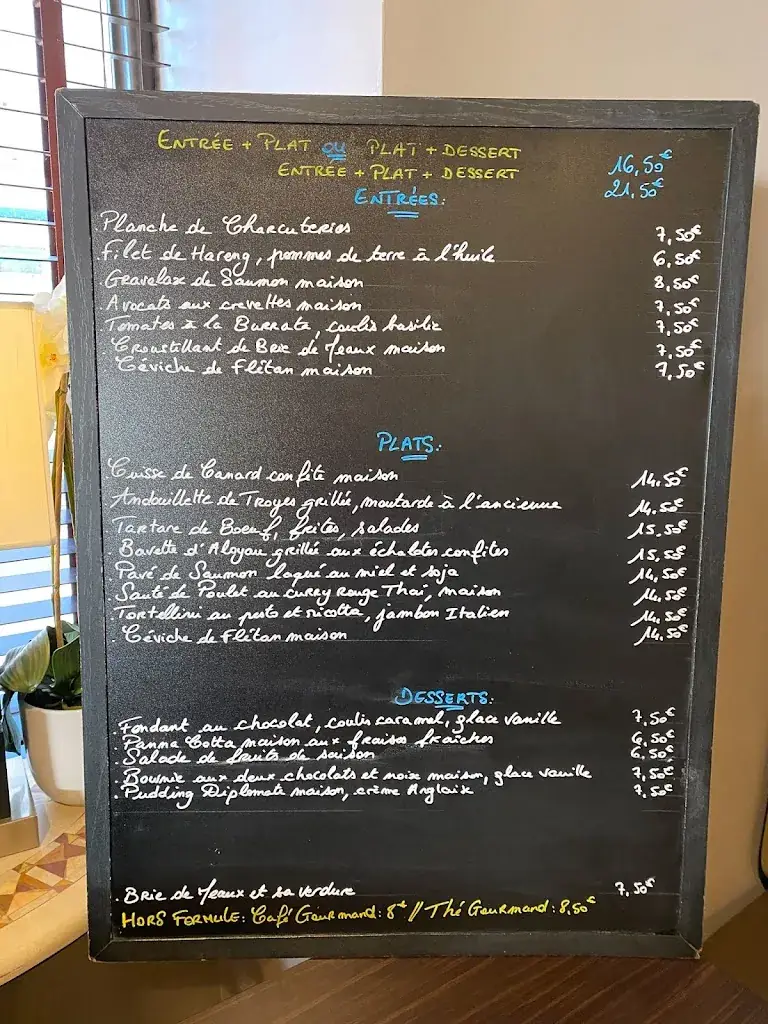 ENTRÉE + PLAT OU PLAT + DESSERT 16,50€
ENTRÉE + PLAT + DESSERT 21,50€
ENTRÉES:
. Planche de Charcuteries 7,50€
. Filet de Hareng, pommes de terre à l'huile 6,50€
. Gravelax de Saumon maison 8,50€
. Avocats aux crevettes maison 7,50€
. Tomates à la Burrata, coulis basilic 7,50€
. Croustillant de Brie de Meaux maison 7,50€
. Céviche de Flétan maison 7,50€
PLATS:
. Cuisse de Canard confite maison 14,50€
. Andouillette de Troyes grillée, moutarde à l'ancienne 14,50€
. Tartare de Boeuf, frites, salades 15,50€
. Bavette d'Aloyau grillée aux échalotes confites 15,50€
. Pavé de Saumon laqué au miel et soja 14,50€
. Sauté de Poulet au curry rouge Thaï, maison 14,50€
. Tortellini au pesto et ricotta, jambon Italien 14,50€
. Céviche de Flétan maison 14,50€
DESSERTS:
. Fondant au chocolat, coulis caramel, glace vanille 7,50€
. Panna Cotta maison aux fraises fraîches 6,50€
. Salade de fruits de saison 6,50€
. Bownie aux deux chocolats et noix maison, glace vanille 7,50€
. Pudding Diplomate maison, crème Anglaise 7,50€
. Brie de Meaux et sa verdure 7,50€
HORS FORMULE: Café Gourmand: 8€ // Thé Gourmand: 8,50€